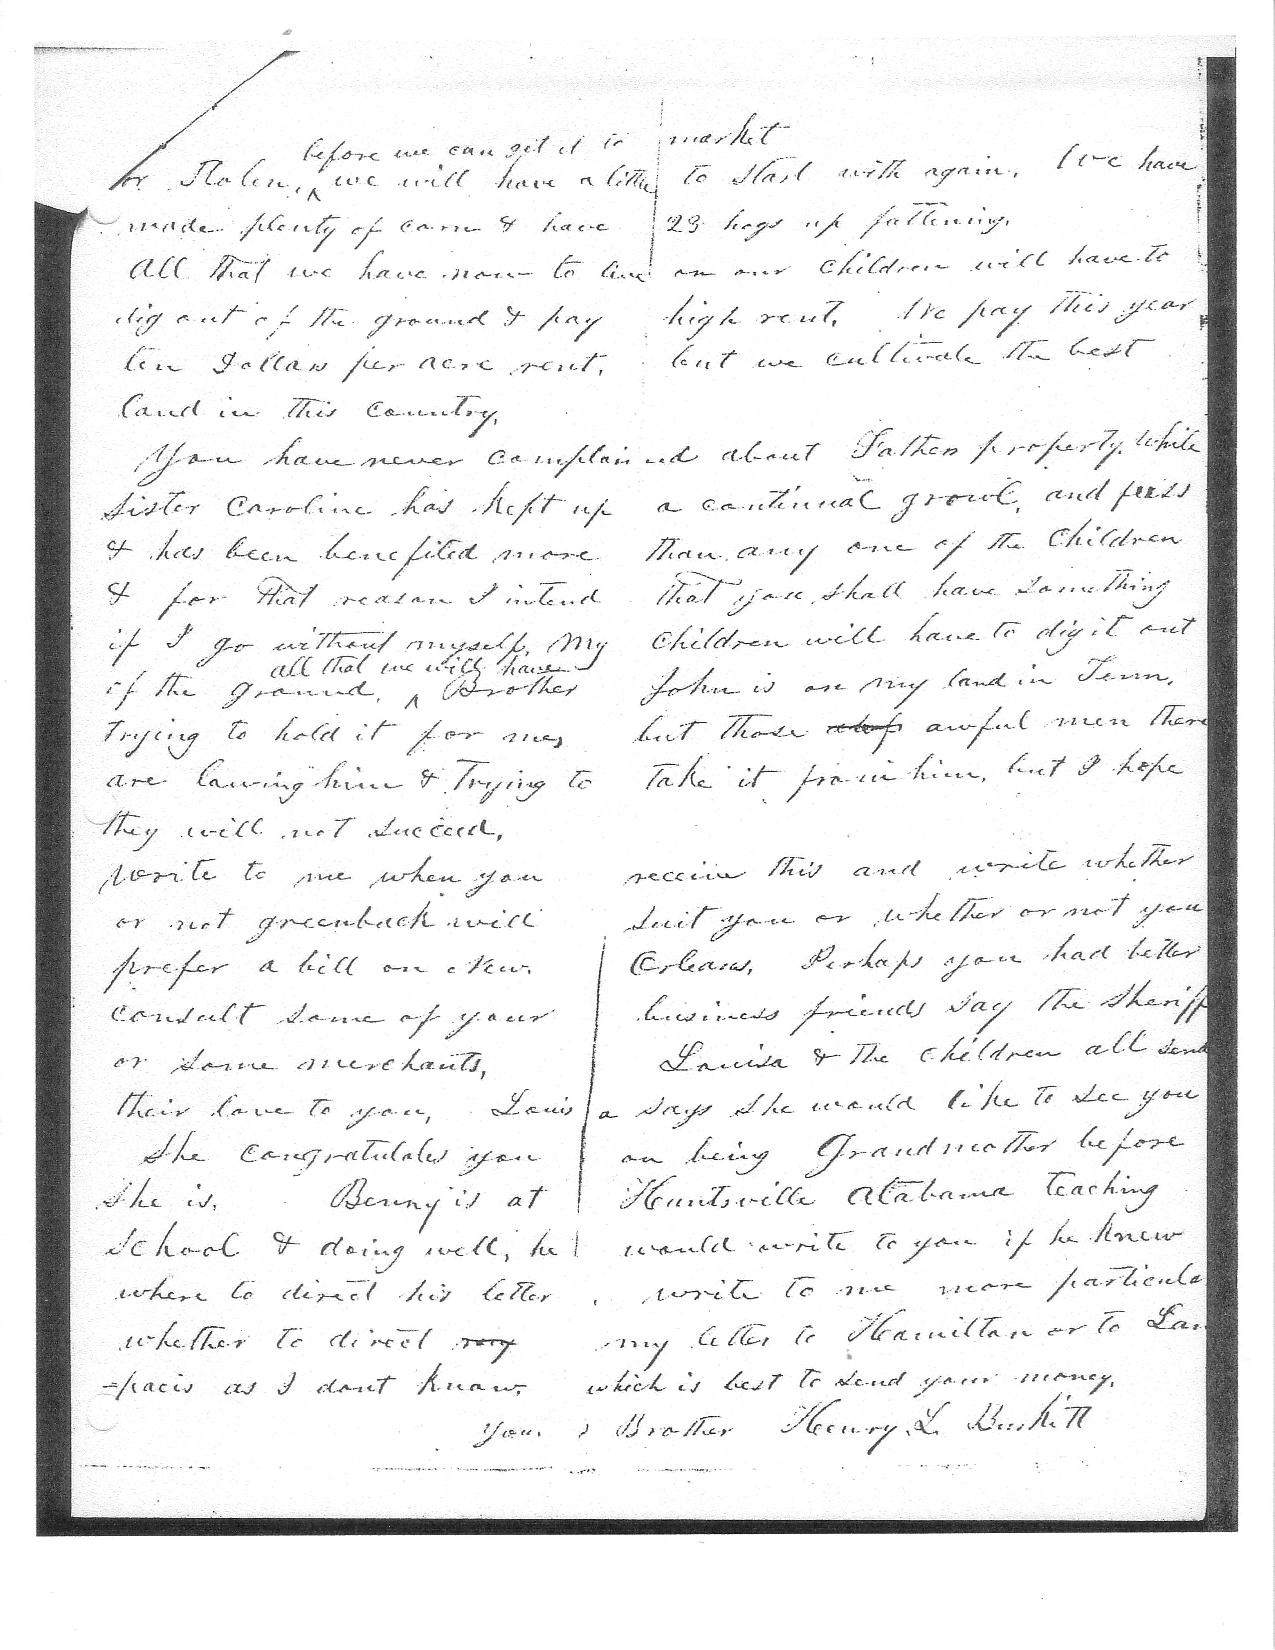 before we can get it to market
or Stolen, ^ we will have a little to start with again. We have
made plenty of corn & have 23 hogs up fattening.
All that we have now to live on our children will have to
dig out of the ground & pay high rent. We pay this year
ten Dollars per acre rent, but we cultivate the best
land in this country.
You have never complaind about Fathers property, While
Sister Caroline has kept up a continual growl, and fuss
& has been benefited more than any one of the Children
& for that reason I intend that you shall have something
if I go without myself, My children will have to dig it out
all that we will have
of the ground, ^ Brother John is on my land in Tenn,
trying to hold it for me, but those awful men there
are lawing him & Trying to take it from him, but I hope
they will not succeed,
Write to me when you receive this and write whether
or not greenback will suit you or whether or not you
prefer a bill on New Orleans. Perhaps you had better
consult some of your business friends say the Sheriff
or some merchants, Louisa & the children all send
their love to you, Louisa says she would like to see you
She congratulates you on being Grandmother before
She is. Benny is at Huntsville Alabama teaching
School & doing well, he would write to you if he knew
where to direct his letter. write to me more particula
whether to direct my letter to Hamilton or to Lam
=pacis as I dont know. which is best to send your money.
Your Brother Henry L. Buskitt